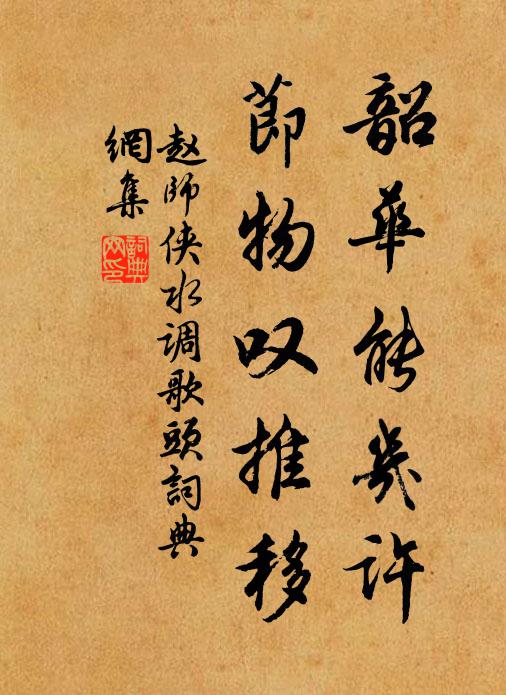 韶華能幾許
節物叹推移
趙師俠水调歌頭詞典
網集
詞典
网印